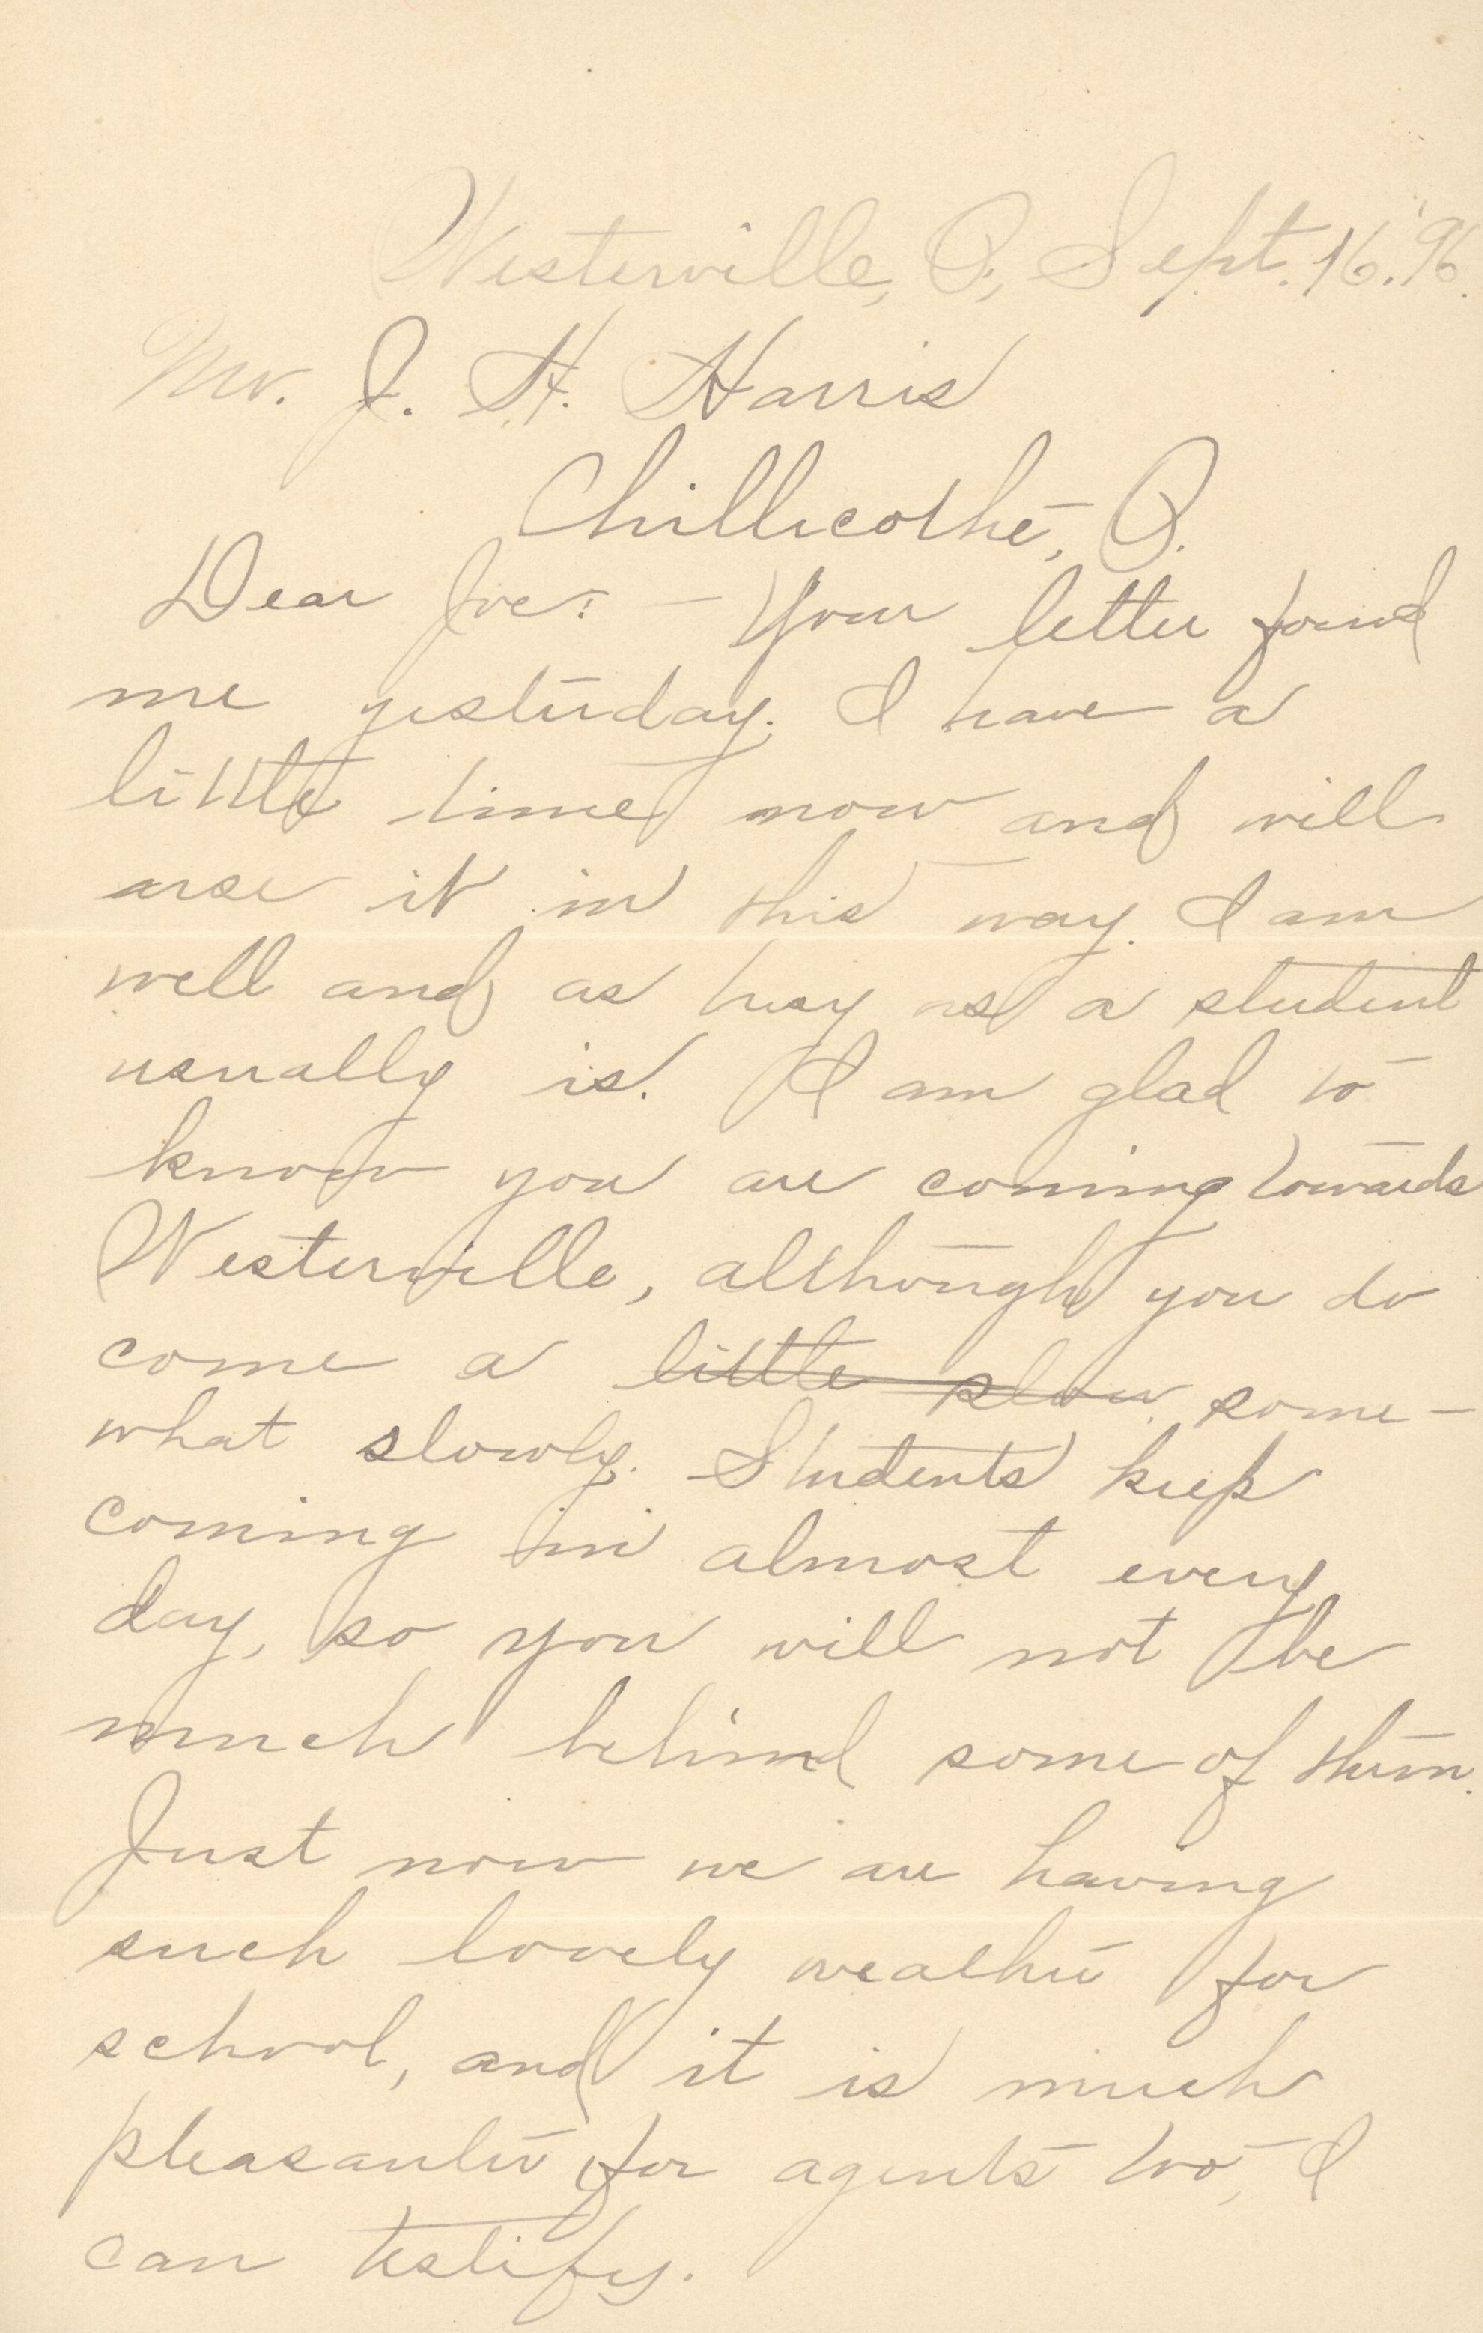 Westerville, O., Sept. 16. '96.
Mr. J. H. Harris
Chillicothe, O.
Dear Joe: — Your letter found
me yesterday. I have a
little time now and will
use it in this way. I am
well and as busy as a student
usually is. I am glad to
know you are coming towards
Westerville, although you do
come a little slow some-
what slowly. Students keep
coming in almost every
day, so you will not be
much behind some of them.
Just now we are having
such lovely weather for
school, and it is much
pleasanter for agents too, I
can testify.